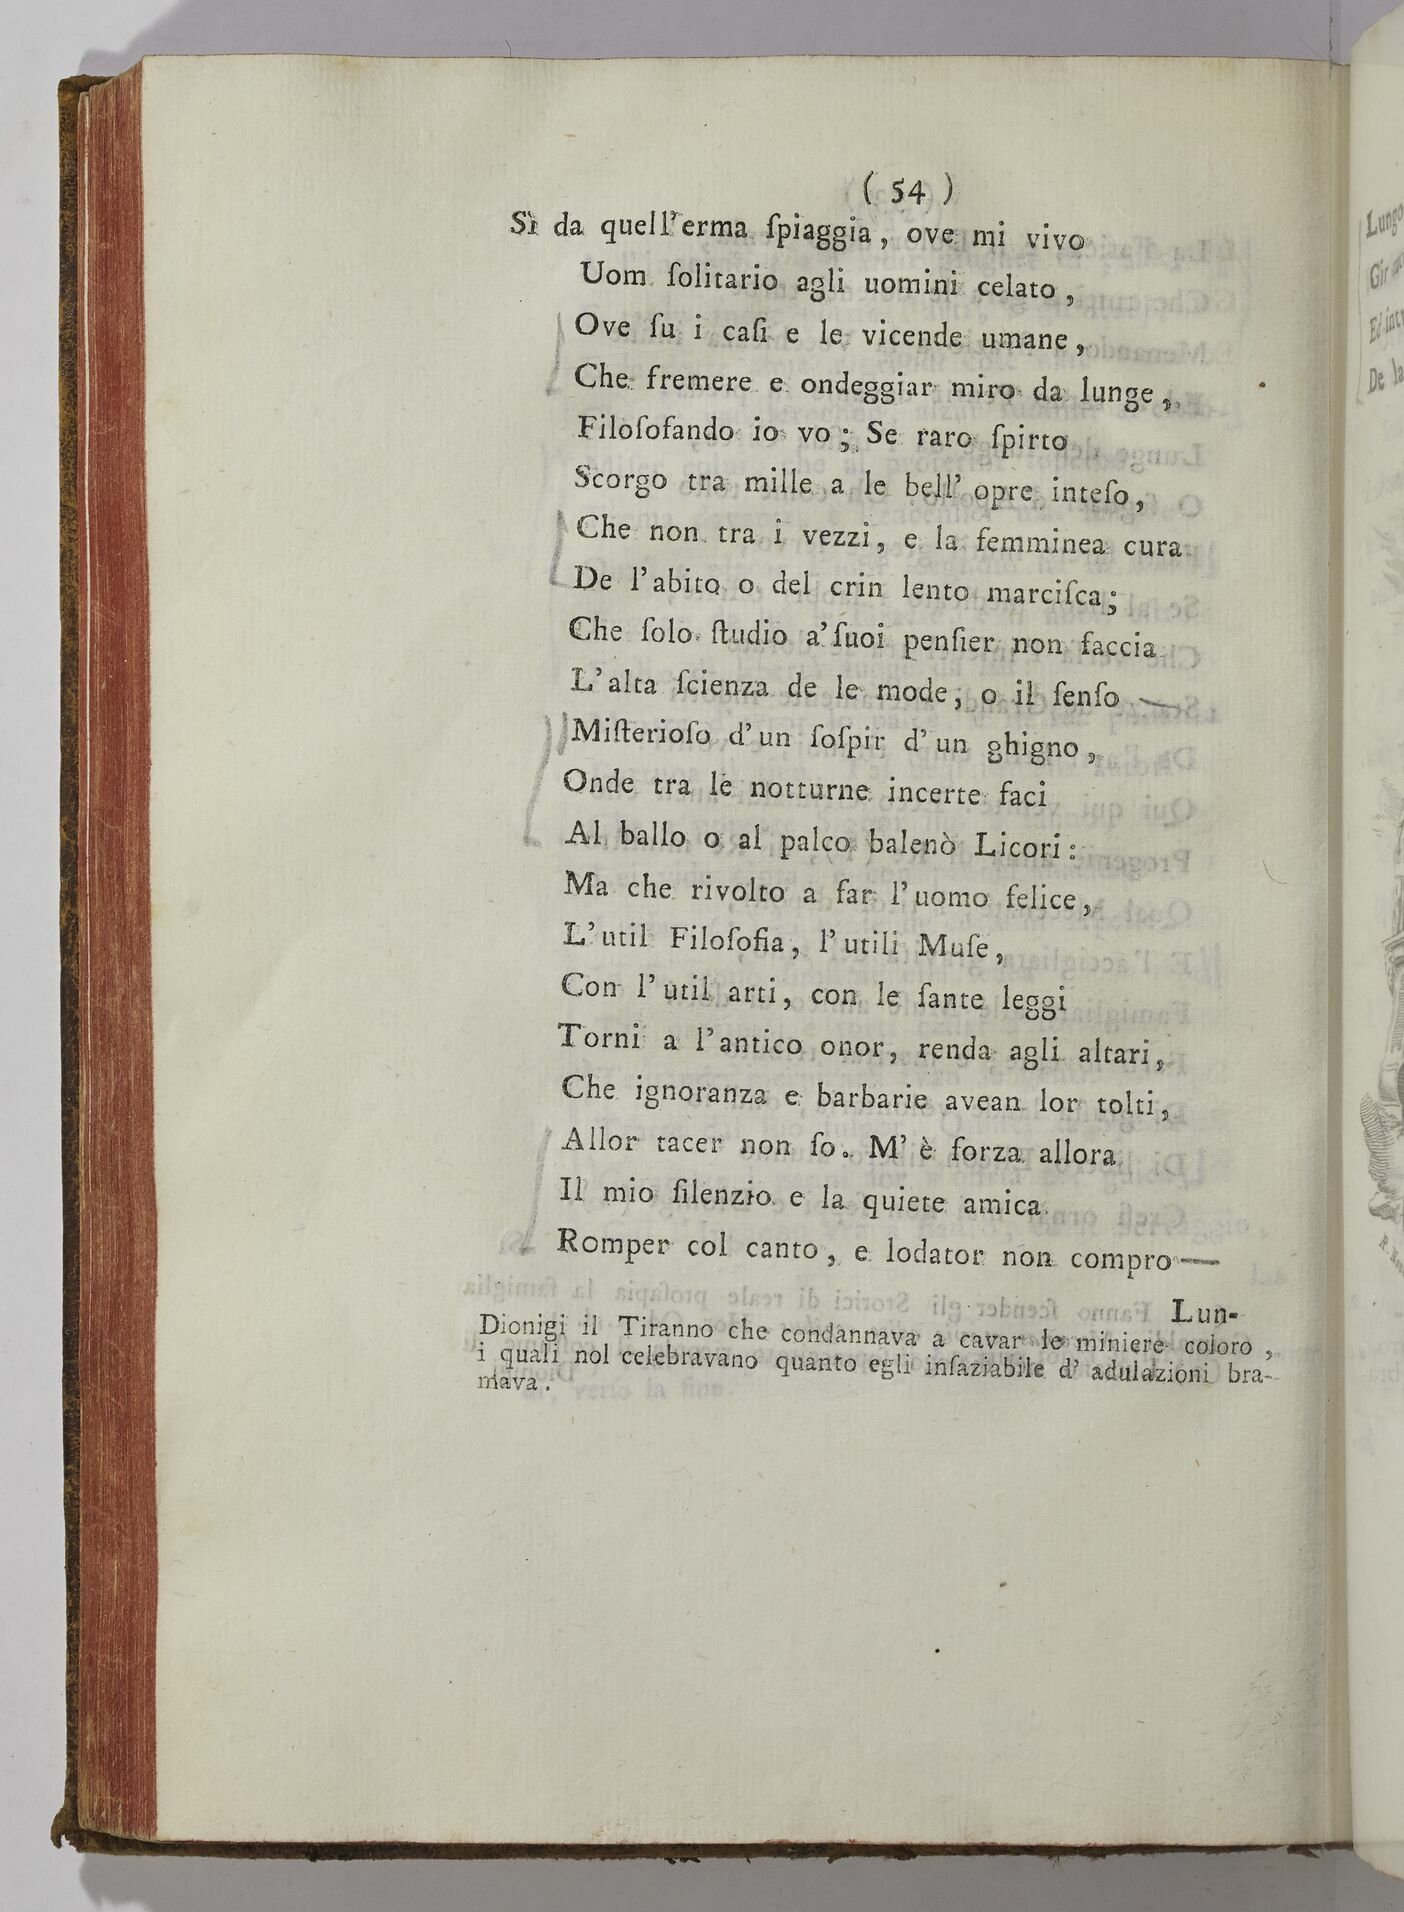 ( 54 )
Sì da quell'erma ſpiaggia, ove mi vivo
Uom ſolitario agli uomini celato,
Ove ſu i caſi e le vicende umane,
Che fremere e ondeggiar miro da lunge,
Filoſofando io vo; Se raro ſpirto
Scorgo tra mille a le bell' opre inteſo,
Che non tra i vezzi, e la femminea cura
De l'abito o del crin lento marciſca;
Che ſolo ſtudio a' ſuoi penſier non faccia
L'alta ſcienza de le mode, o il ſenſo
Miſterioſo d'un ſoſpir d'un ghigno,
Onde tra le notturne incerte faci
Al ballo o al palco balenò Licori:
Ma che rivolto a far l'uomo felice,
L'util Filoſofia, l'utili Muſe,
Con l'util arti, con le ſante leggi
Torni a l'antico onor, renda agli altari,
Che ignoranza e barbarie avean lor tolti,
Allor tacer non ſo. M'è forza allora
Il mio ſilenzio e la quiete amica
Romper col canto, e lodator non compro
Lun-
Dionigi il Tiranno che condannava a cavar le miniere coloro,
i quali nol celebravano quanto egli inſaziabile d' adulazioni bra-
mava.
Lungo
De la